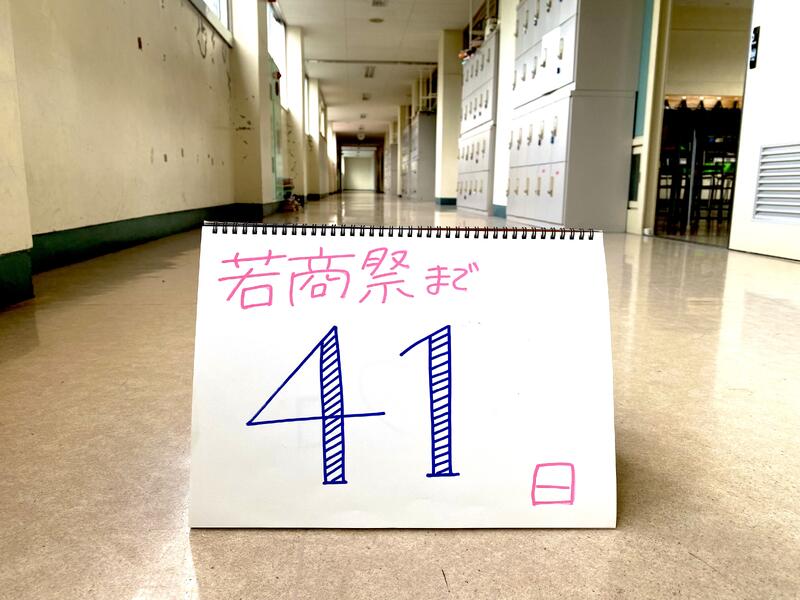 若商祭まで
41
日